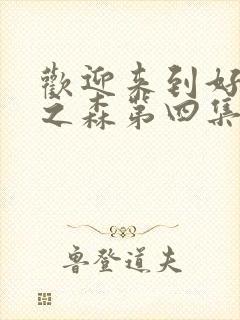 歡迎来到好
之森第四集
魯登道夫